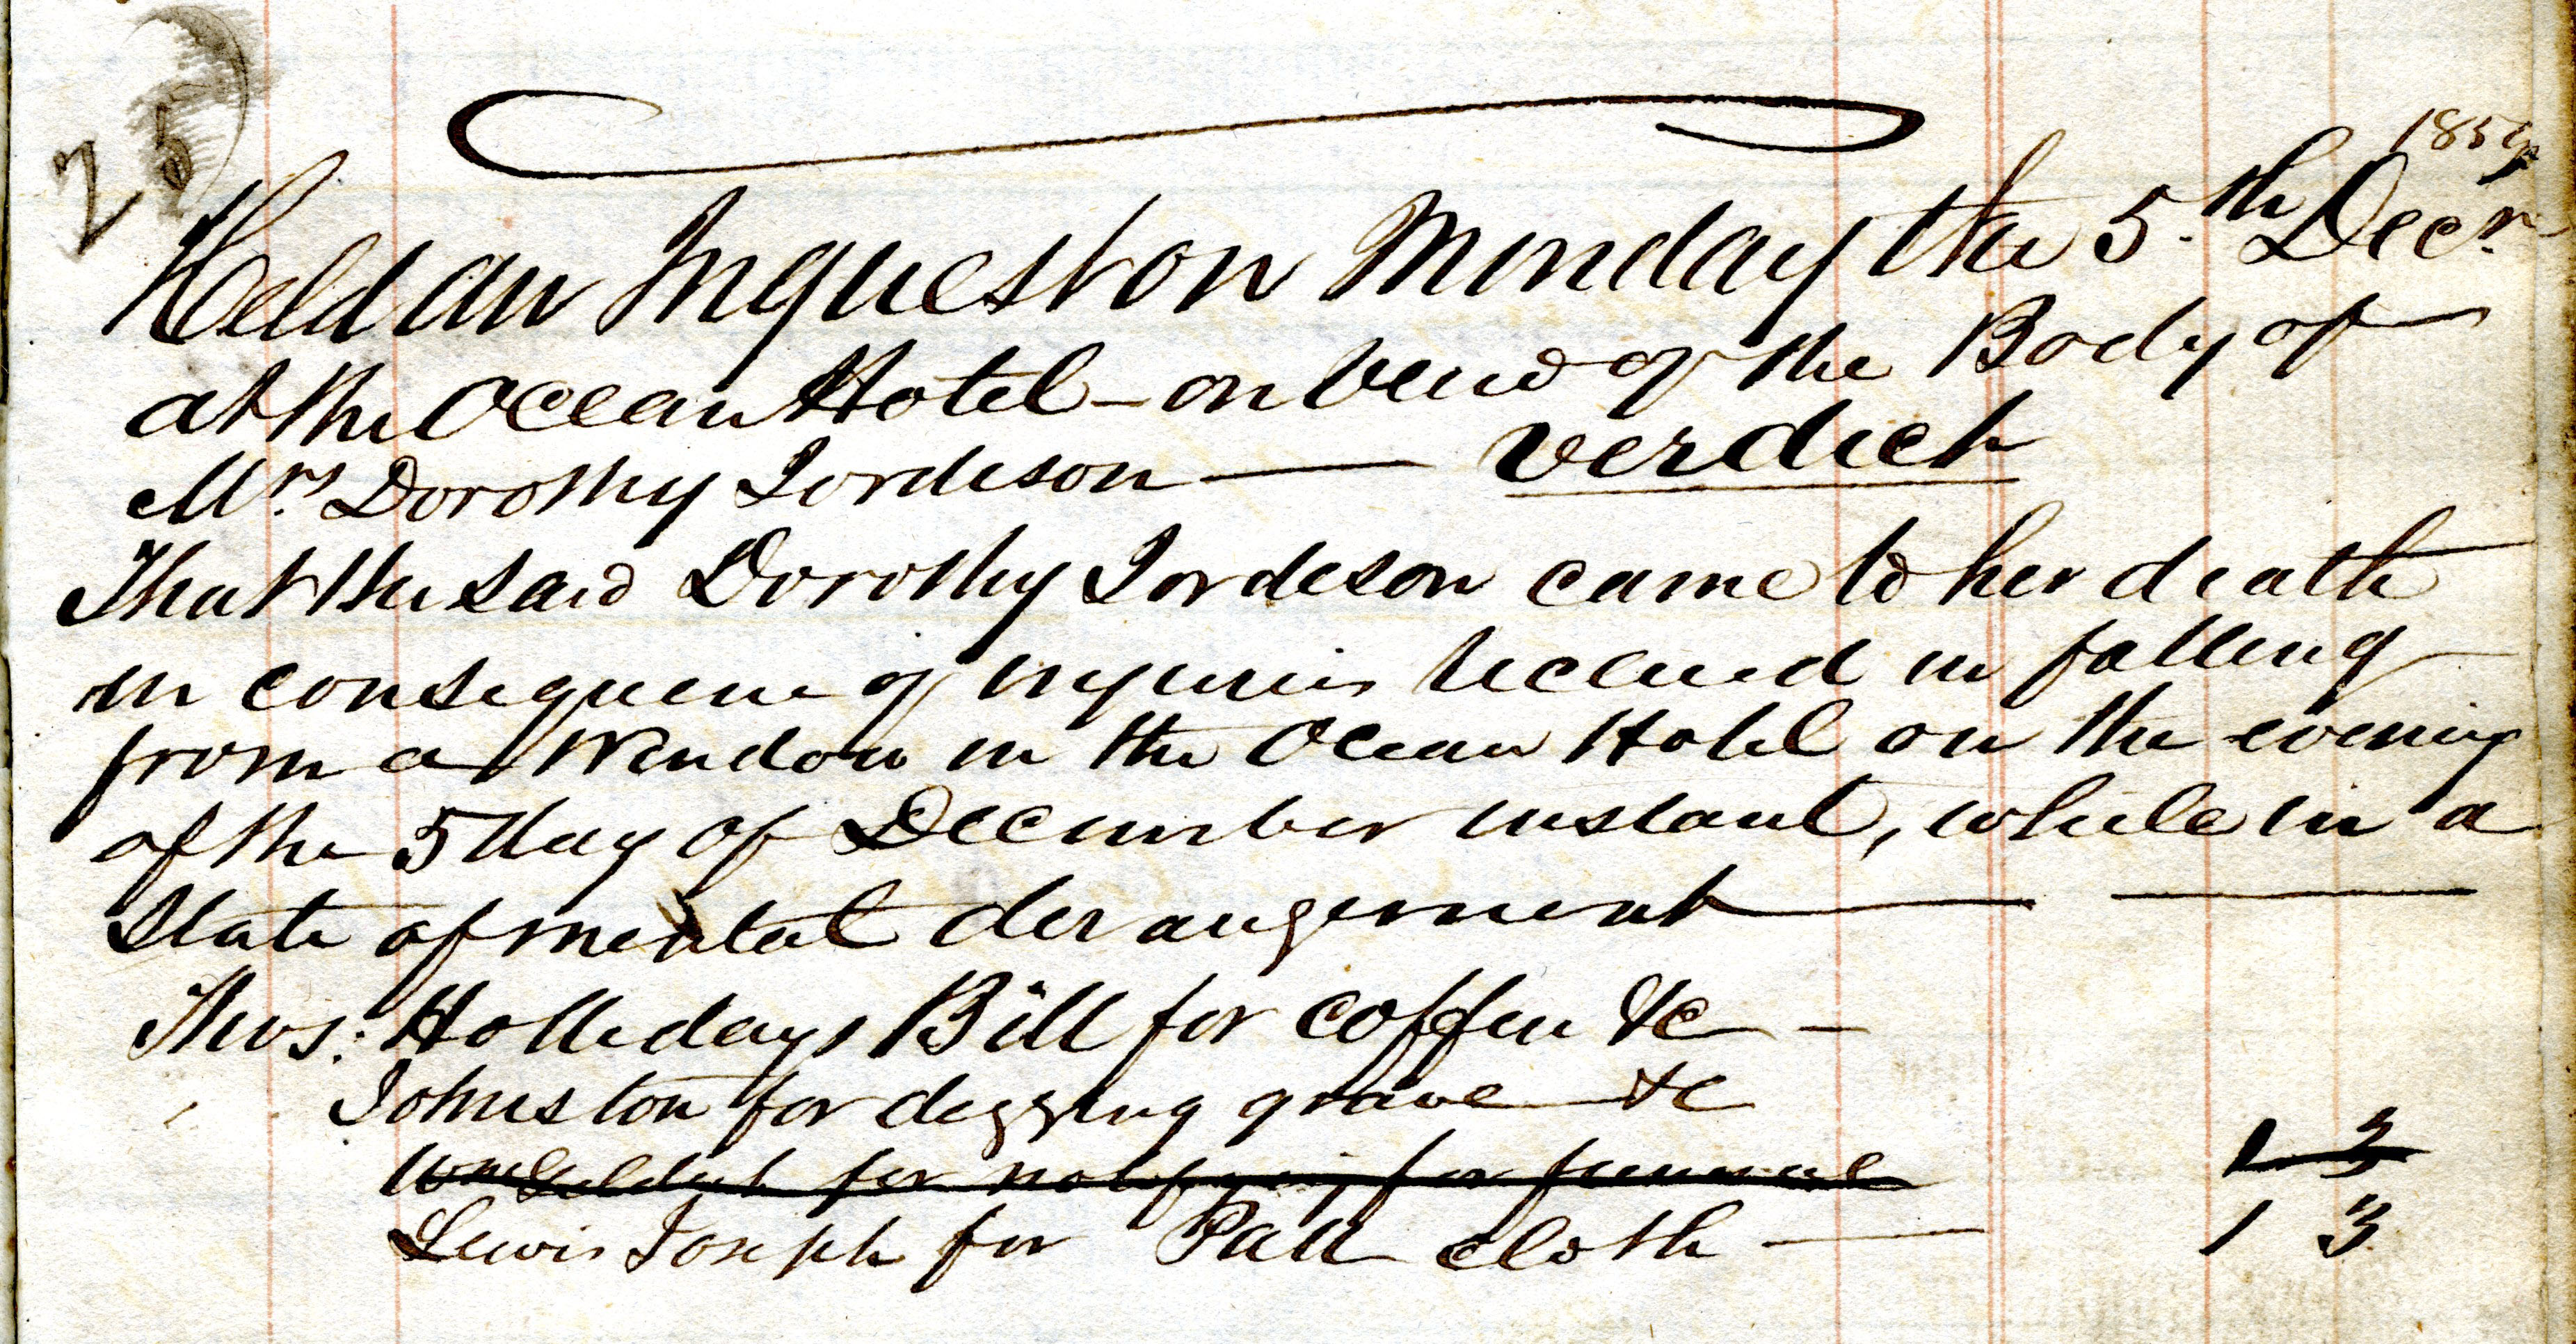 25
1859
Held an Inquest on Monday the 5.th Decr.
at the Ocean Hotel - on veiw of the Body of
Mrs. Dorothy Jordeson — Verdict
That the said Dorothy Jordeson came to her death
in consequence of injuries received in falling
from a Window in the Ocean Hotel on the evening
of the 5 day of December instant, while in a
State of mental derangement —
Thos: Hollidays Bill for coffin &c —
Johnston for digging grave &c
Wm for notifying for funeral 1 3
Lewis Joseph for Pall cloth — 1 3